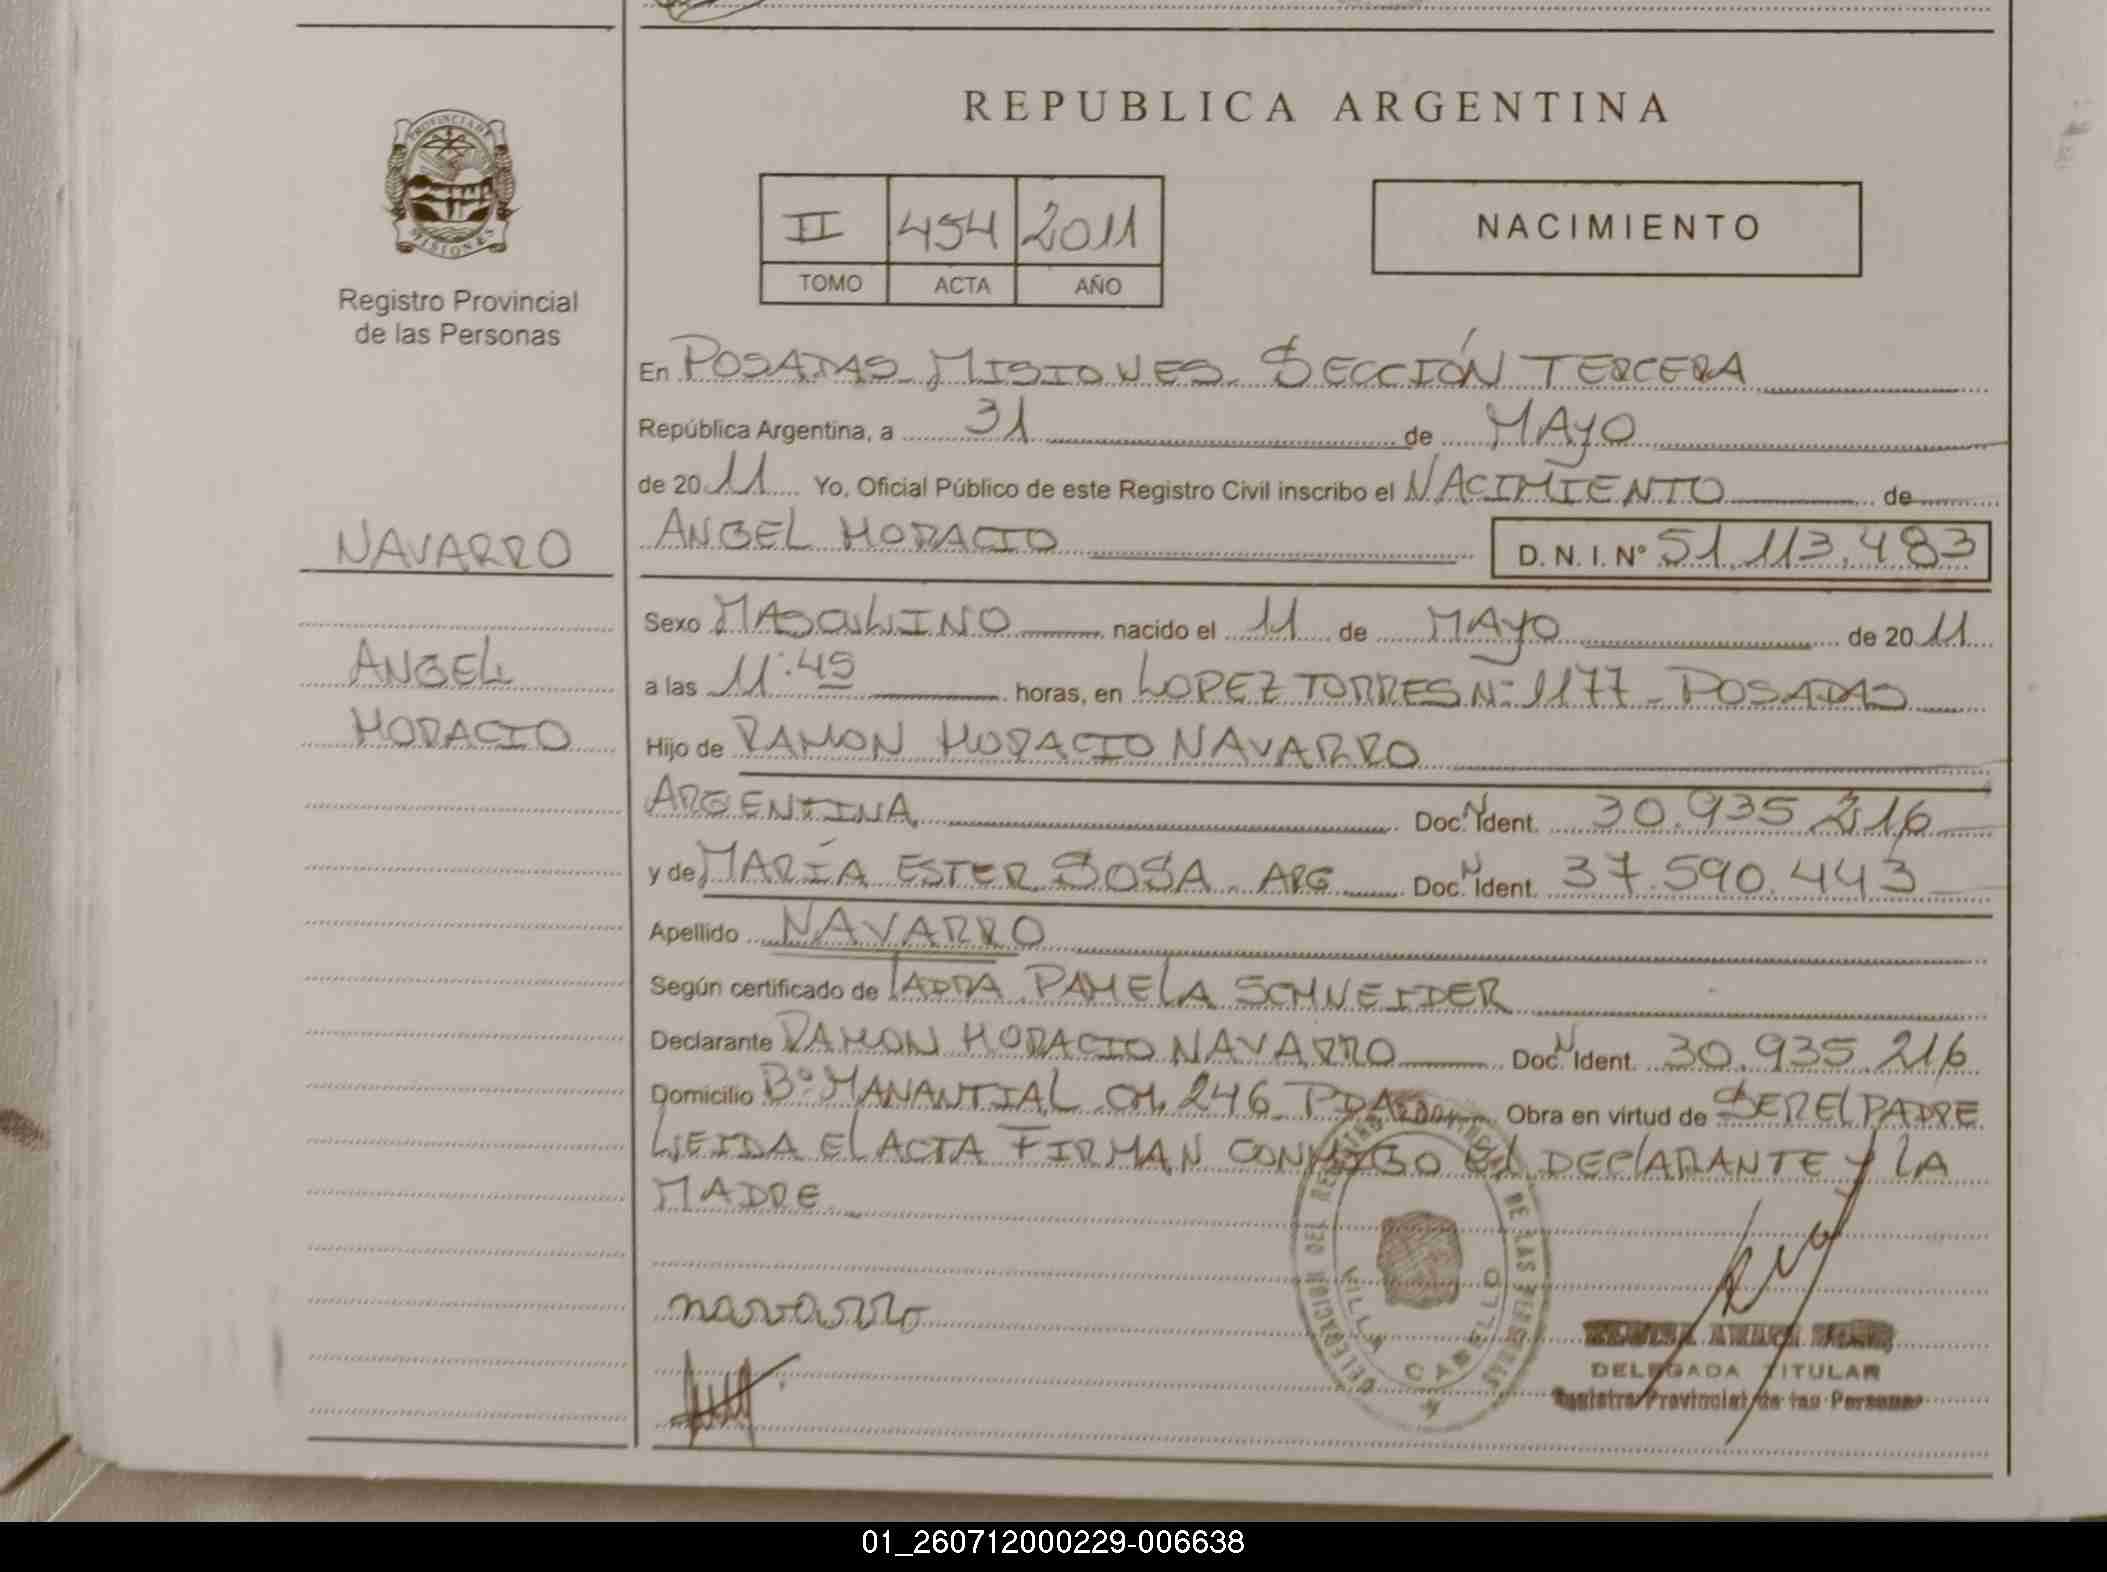 REPUBLICA ARGENTINA
PROVINCIA DE MISIONES
Registro Provincial
de las Personas
II 454 2011
TOMO ACTA AÑO
NACIMIENTO
En POSADAS MISIONES. SECCIÓN TERCERA
República Argentina, a 31 de MAYO
de 2011 Yo, Oficial Público de este Registro Civil inscribo el NACIMIENTO de
NAVARRO
ANGEL HORACIO D. N. I. Nº 51.113.483
Sexo MASCULINO nacido el 11 de MAYO de 2011
ANGEL
a las 11:45 horas, en LOPEZ TORRES Nº 1177 - POSADAS
HORACIO
Hijo de RAMON HORACIO NAVARRO
ARGENTINA Doc. N Ident. 30.935.216
y de MARÍA ESTER SOSA. ARG Doc. N Ident. 37.590.443
Apellido NAVARRO
Según certificado de LA DRA PAMELA SCHNEIDER
Declarante RAMON HORACIO NAVARRO Doc. N Ident. 30.935.216
Domicilio Bº MANANTIAL CH. 246 PDAS Obra en virtud de SER EL PADRE
LEIDA EL ACTA FIRMAN CONMIGO EL DECLARANTE Y LA
MADRE
DELEGACION DEL REGISTRO PROVINCIAL DE LAS PERSONAS
VILLA CABELLO
navarro
DELEGADA TITULAR
Registro Provincial de las Personas
01_260712000229-006638